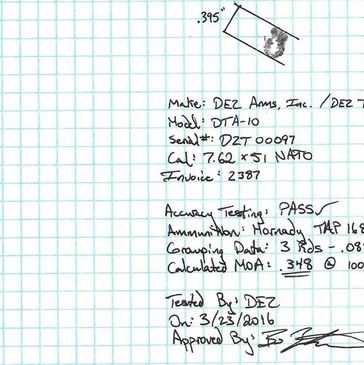 .395"
Make: DEZ Arms, Inc. / DEZ T
Model: DTA-10
Serial#: DZT 00097
Cal: 7.62 x 51 NATO
Invoice: 2387
Accuracy Testing: PASS ✓
Ammunition: Hornady TAP 168
Grouping Data: 3 Rds - .08
Calculated MOA: .348 @ 100
Tested By: DEZ
On: 3/23/2016
Approved By: